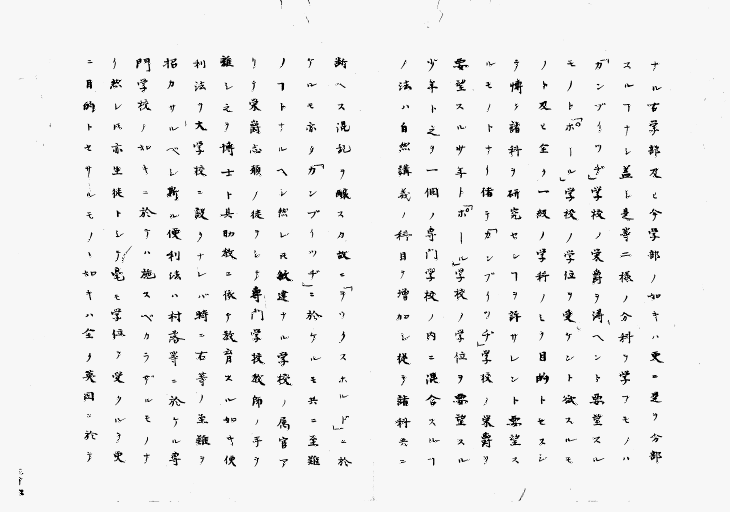 ナル古学部及ヒ今学部ノ如キハ更ニ是ヲ分部
スルヿナシ蓋シ是等二様ノ分科ヲ学フモノハ
ガンブイツヂ」学校ノ栄爵ヲ得ヘント要望スル
モノト「ポール」学校ノ学位ヲ受ケント欲スルモ
ノト及ヒ全ク一級ノ学科ノミヲ目的トセスシ
テ博ク諸科ヲ研究センヿヲ許サレント要望ス
ルモノトナリ偖テガンブイツヂ」学校ノ栄爵ヲ
要望スル少年ト「ポール」学校ノ学位ヲ要望スル
少年ト之ヲ一個ノ専門学校ノ内ニ混合スルヿ
ノ法ハ自然講義ノ科目ヲ増加シ従テ諸科共ニ
断ヘス混乱ヲ醸ス故ニ「ヲックスホルド」ニ於
ケルモ亦タ「カンブイツヂ」ニ於ケルモ共ニ至難
ノヿトナルヘシ然レ氏敏達ナル学校ノ属官ア
リテ栄爵志願ノ徒ヲシテ専門学校教師ノ手ヲ
離レ之ヲ博士ト其助教ニ依テ教育スル如キ便
利法ヲ大学校ニ設ケナレバ時ニ右等ノ至難ヲ
招カサルベシ斯ル便利法ハ村落等ニ於ケル専
門学校ノ如キニ於ケハ施スベカラザルモノナ
リ然レ氏亦生徒トシテ毫モ学位ヲ受クルヲ更
ニ目的トセサルモノヽ如キハ全ク英国ニ於テ